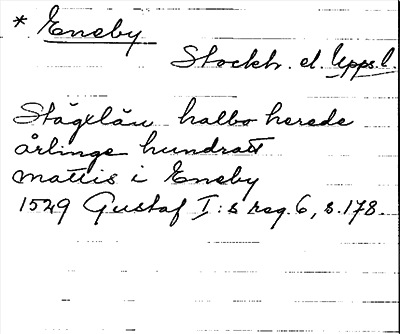 * Eneby
Stockh. el. Upps. l.
Stägelän halbo herede
årlinge hundratt
mattis i Eneby
1529 Gustaf I:s reg. 6, s. 178.